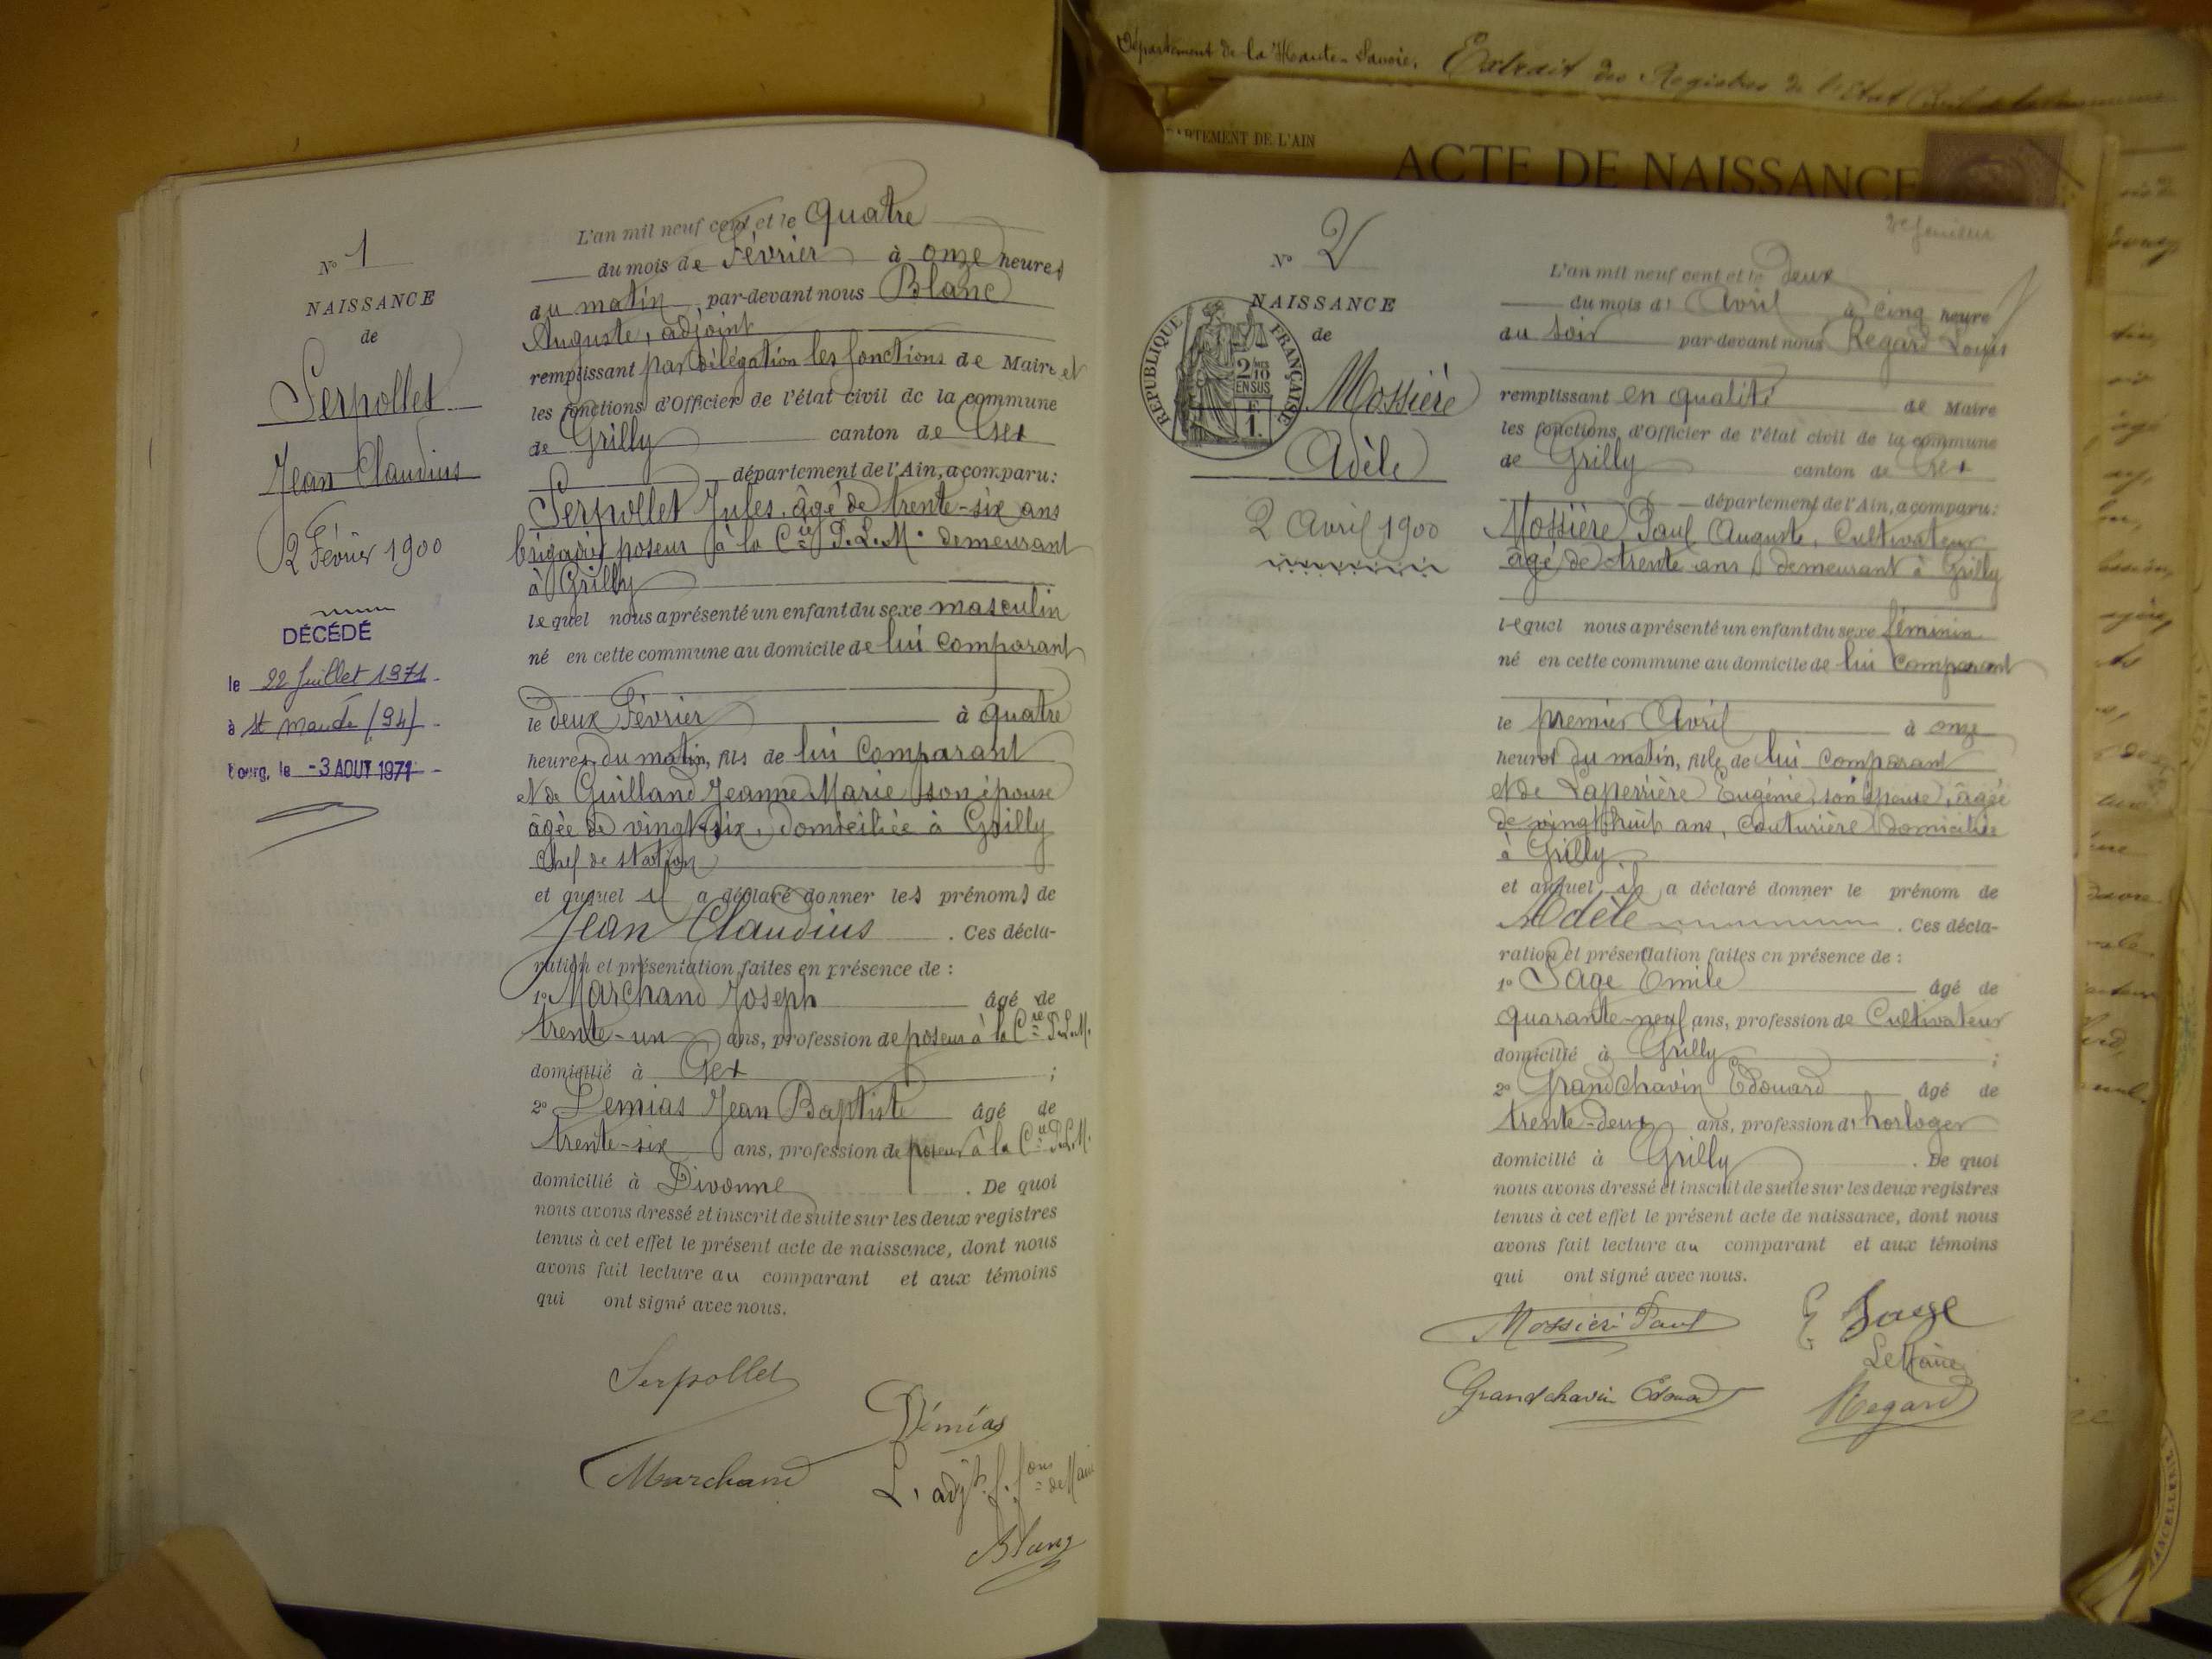 Département de la Haute-Savoie. Extrait des Registres de l'Etat Civil de la commune
DÉPARTEMENT DE L'AIN
ACTE DE NAISSANCE
N° 1
NAISSANCE
de
Serpollet
Jean Claudius
2 Février 1900
DÉCÉDÉ
le 22 Juillet 1971
à St Mandé (94)
Bourg, le -3 AOUT 1971
L'an mil neuf cent et le quatre
du mois de Février à onze heures
du matin par-devant nous Blanc
Auguste, adjoint
remplissant par délégation les fonctions de Maire et
les fonctions d'Officier de l'état civil de la commune
de Grilly canton de Gex
département de l'Ain, a comparu:
Serpollet Jules, âgé de trente-six ans
brigadier poseur à la Cie P.L.M. demeurant
à Grilly
lequel nous a présenté un enfant du sexe masculin
né en cette commune au domicile de lui comparant
le deux Février à quatre
heures du matin, fils de lui comparant
et de Guilland Jeanne Marie son épouse
âgée de vingt-six, domiciliée à Grilly
chef de station
et auquel il a déclaré donner les prénoms de
Jean Claudius. Ces décla-
ration et présentation faites en présence de :
1° Marchand Joseph âgé de
trente-un ans, profession de poseur à la Cie P.L.M.
domicilié à Gex ;
2° Demias Jean Baptiste âgé de
trente-six ans, profession de poseur à la Cie P.L.M.
domicilié à Divonne. De quoi
nous avons dressé et inscrit de suite sur les deux registres
tenus à cet effet le présent acte de naissance, dont nous
avons fait lecture au comparant et aux témoins
qui ont signé avec nous.
Serpollet
Démias
Marchand
L. adjt. f. fons de Maire
Blanc
N° 2
NAISSANCE
de
RÉPUBLIQUE FRANÇAISE
2/10 EN SUS
F. 1.
Mossière
Adèle
2 Avril 1900
L'an mil neuf cent et le deux
du mois d' Avril à cinq heure
du soir par-devant nous Regard Louis
remplissant en qualité de Maire
les fonctions d'Officier de l'état civil de la commune
de Grilly canton de Gex
département de l'Ain, a comparu:
Mossière Paul Auguste, Cultivateur
âgé de trente ans demeurant à Grilly
lequel nous a présenté un enfant du sexe féminin
né en cette commune au domicile de lui comparant
le premier Avril à onze
heures du matin, fille de lui comparant
et de Laperrière Eugénie, son épouse, âgée
de vingt huit ans, couturière domiciliée
à Grilly
et auquel il a déclaré donner le prénom de
Adèle. Ces décla-
ration et présentation faites en présence de :
1° Sage Emile âgé de
quarante-neuf ans, profession de Cultivateur
domicilié à Grilly ;
2° Grandchavin Edouard âgé de
trente-deux ans, profession d' horloger
domicilié à Grilly. De quoi
nous avons dressé et inscrit de suite sur les deux registres
tenus à cet effet le présent acte de naissance, dont nous
avons fait lecture au comparant et aux témoins
qui ont signé avec nous.
Mossière Paul
E. Sage
Le Maire
Grandchavin Edouard
Regard